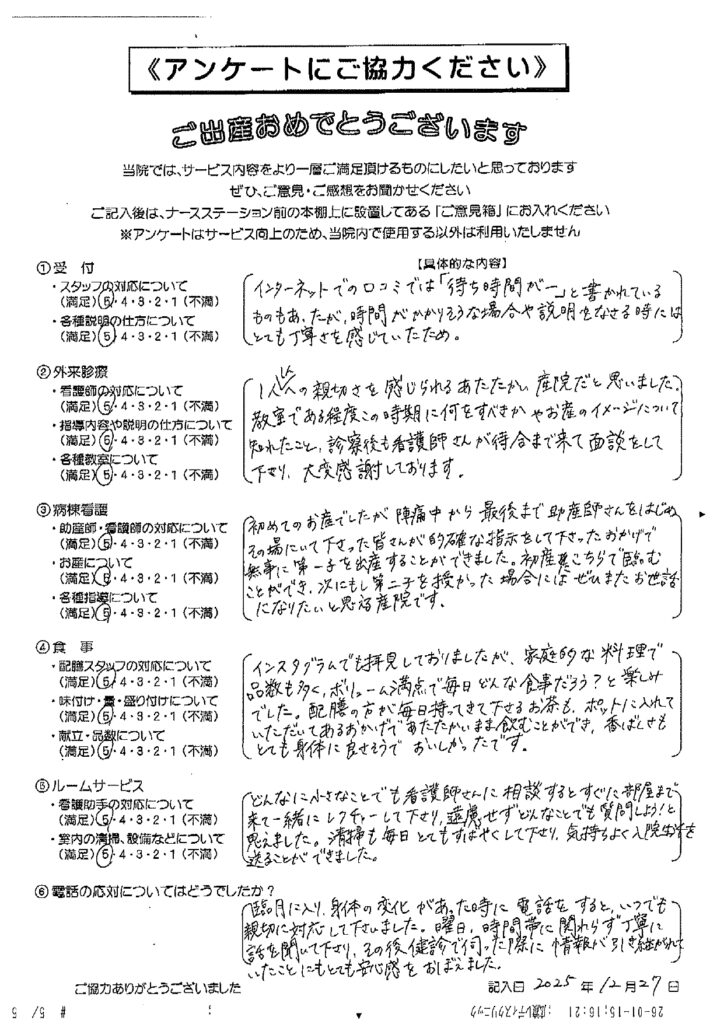 《アンケートにご協力ください》
ご出産おめでとうございます
当院では、サービス内容をより一層ご満足頂けるものにしたいと思っております
ぜひ、ご意見・ご感想をお聞かせください
ご記入後は、ナースステーション前の本棚上に設置してある「ご意見箱」にお入れください
※アンケートはサービス向上のため、当院内で使用する以外は利用いたしません
①受 付
【具体的な内容】
・スタッフの対応について
(満足) 5・4・3・2・1 (不満)
・各種説明の仕方について
(満足) 5・4・3・2・1 (不満)
インターネットでの口コミでは「待ち時間が一」と書かれている
ものもあったが、時間がかかりそうな場合や説明をなさる時には
とても丁寧さを感じていたため。
②外来診療
・看護師の対応について
(満足) 5・4・3・2・1 (不満)
・指導内容や説明の仕方について
(満足) 5・4・3・2・1 (不満)
・各種教室について
(満足) 5・4・3・2・1 (不満)
1人1人への親切さを感じられるあたたかい産院だと思いました。
教室である程度この時期に何をすべきかやお産のイメージについて
知れたこと、診察後も看護師さんが待合まで来て面談をして
下さり、大変感謝しております。
③病棟看護
・助産師・看護師の対応について
(満足) 5・4・3・2・1 (不満)
・お産について
(満足) 5・4・3・2・1 (不満)
・各種指導について
(満足) 5・4・3・2・1 (不満)
初めてのお産でしたが陣痛中から最後まで助産師さんをはじめ
その場にいて下さった皆さんが的確な指示をして下さったおかげで
無事に第一子を出産することができました。初産をこちらで臨む
ことができ、次にもし第二子を授かった場合にはぜひまたお世話
になりたいと思える産院です。
④食 事
・配膳スタッフの対応について
(満足) 5・4・3・2・1 (不満)
・味付け・量・盛り付けについて
(満足) 5・4・3・2・1 (不満)
・献立・品数について
(満足) 5・4・3・2・1 (不満)
インスタグラムでも拝見しておりましたが、家庭的な料理で
品数も多く、ボリューム満点で毎日どんな食事だろう?と楽しみ
でした。配膳の方が毎日持ってきて下さるお茶も、ポットに入れて
いただいてあるおかげであたたかいまま飲むことができ、香ばしさも
とても身体に良さそうでおいしかったです。
⑤ルームサービス
・看護助手の対応について
(満足) 5・4・3・2・1 (不満)
・室内の清掃、設備などについて
(満足) 5・4・3・2・1 (不満)
どんなに小さなことでも看護師さんに相談するとすぐに部屋まで
来て一緒にレクチャーして下さり、遠慮せずどんなことでも質問しよう!と
思えました。清掃も毎日とてもすばやくして下さり、気持ちよく入院生活を
送ることができました。
⑥電話の応対についてはどうでしたか?
臨月に入り、身体の変化があった時に電話をすると、いつでも
親切に対応して下さいました。曜日、時間帯に関わらず丁寧に
話を聞いて下さり、その後健診で伺った際に情報が引き継がれて
いたことにもとても安心感をおぼえました。
ご協力ありがとうございました
記入日 2025年12月27日
26-01-15;16:12
レディスクリニック
# 5/ 6